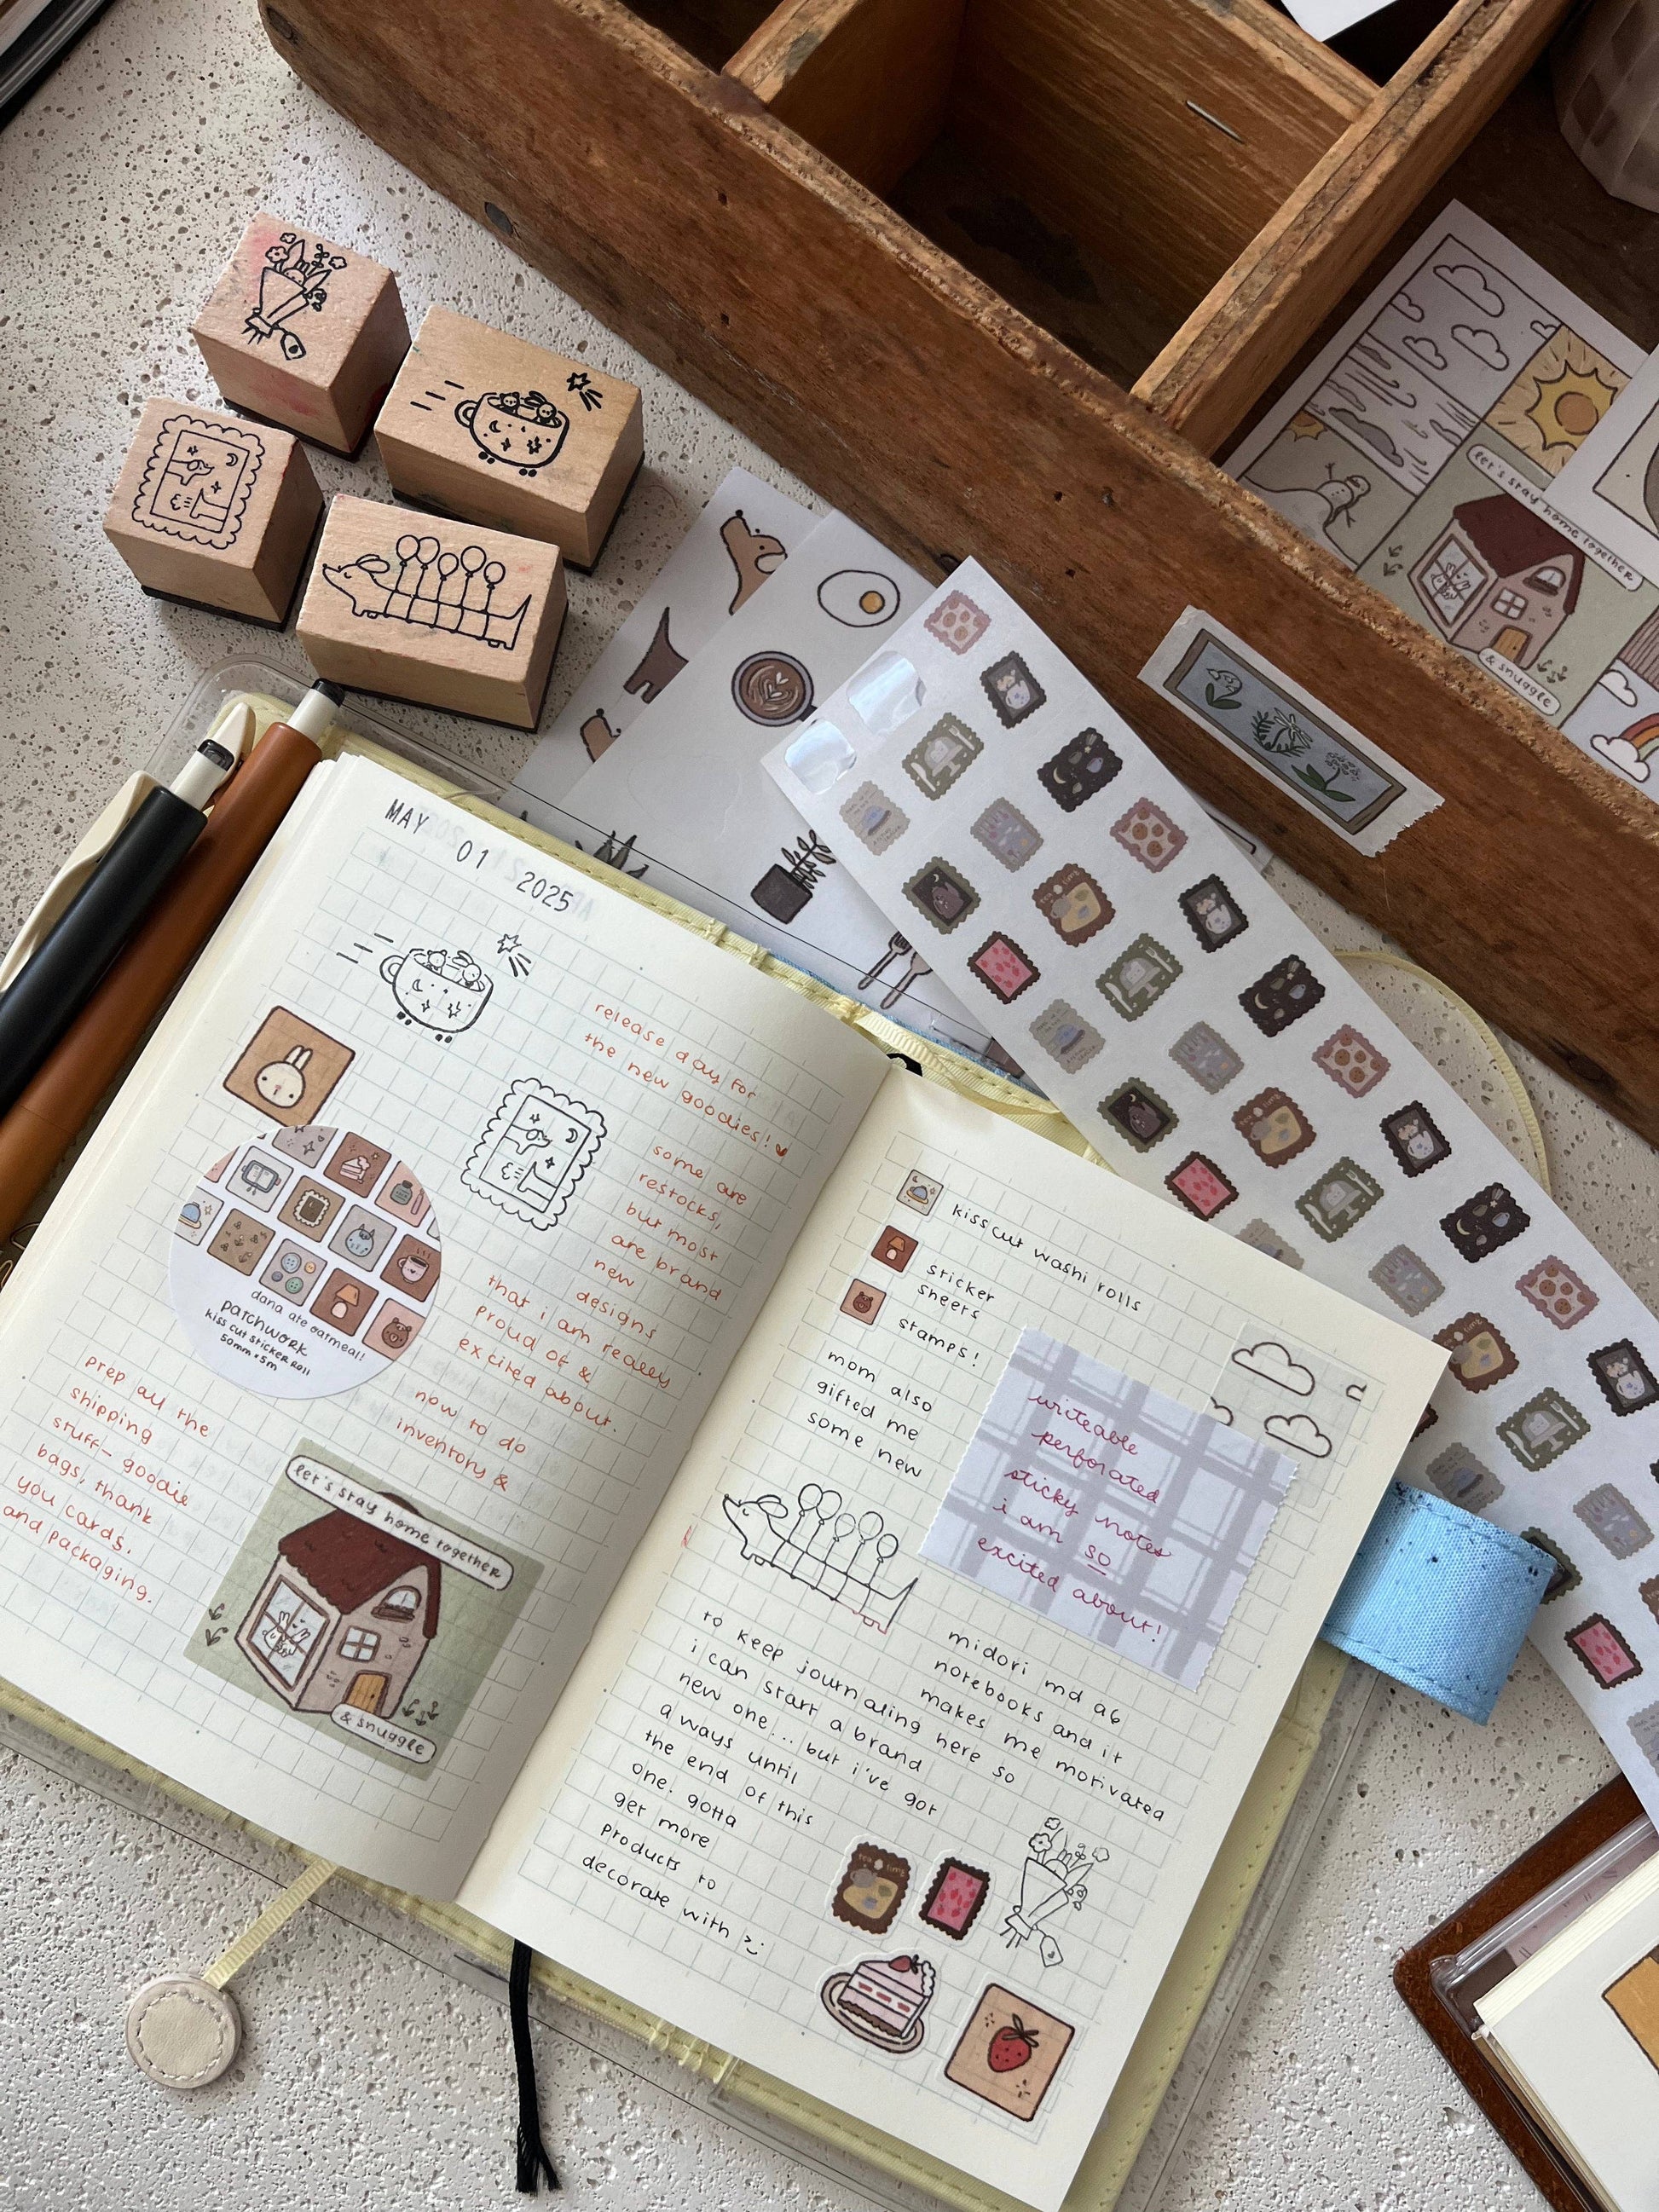 MAY
01
2025
release day for
the new goodies!
some are
restocks,
but most
are brand
new
designs
that i am really
proud of &
excited about.
now to do
inventory &
prep all the
shipping
stuff- goodie
bags, thank
you cards,
and packaging.
dana ate oatmeal!
patchwork
kiss cut sticker roll
50mm x 5m
let's stay home together
& snuggle
kisscut washi rolls
sticker
sheets
stamps!
writeable
perforated
sticky notes
i am so
excited about!
mom also
gifted me
some new
midori md a6
notebooks and it
makes me motivated
to keep journaling here so
i can start a brand
new one... but i've got
a ways until
the end of this
one. gotta
get more
products to
decorate with
let's stay home together
& snuggle